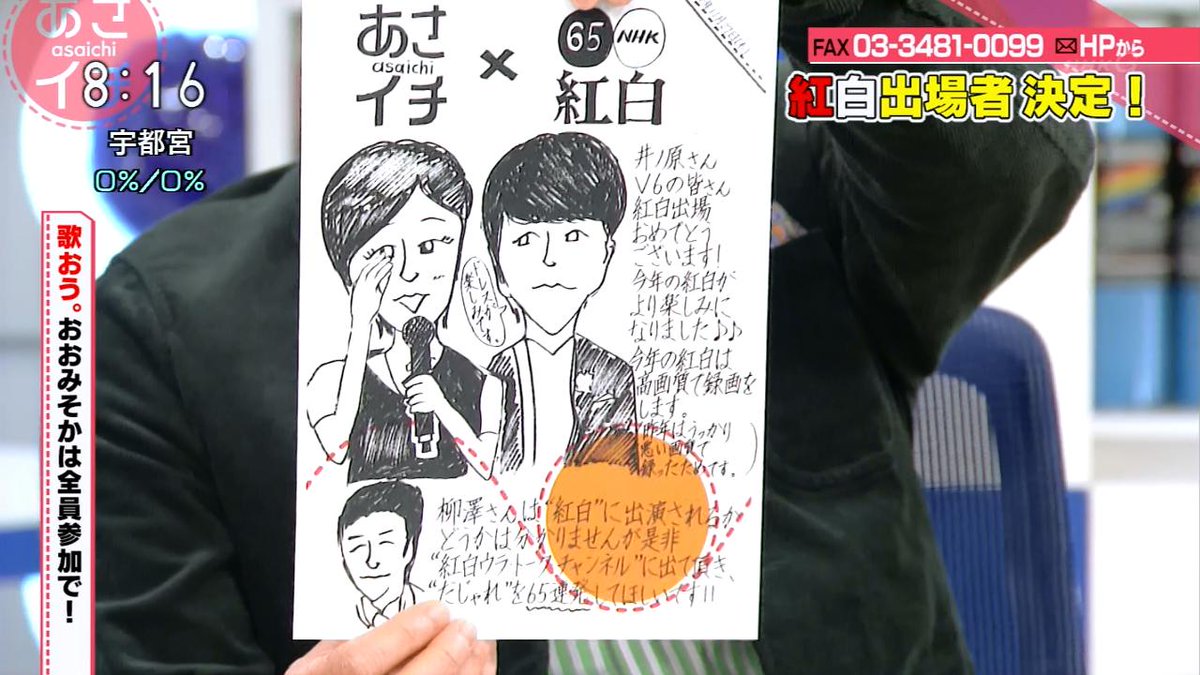 あさ
asaichi
イチ
8:16
宇都宮
0%/0%
歌おう。おおみそかは全員参加で!
FAX 03-3481-0099 HPから
紅白出場者 決定!
あさ
asaichi
イチ
×
65 NHK
紅白
井ノ原さん
V6の皆さん
紅白出場
おめでとう
ございます!
今年の紅白が
より楽しみに
なりました♪♪
今年の紅白は
高画質で録画を
します。
(昨年はうっかり
悪い画質で
録ったためです。)
柳澤さんは"紅白"に出演されるか
どうかは分かりませんが是非
"紅白ウラトークチャンネル"に出て頂き、
"だじゃれ"を65連発してほしいです!!